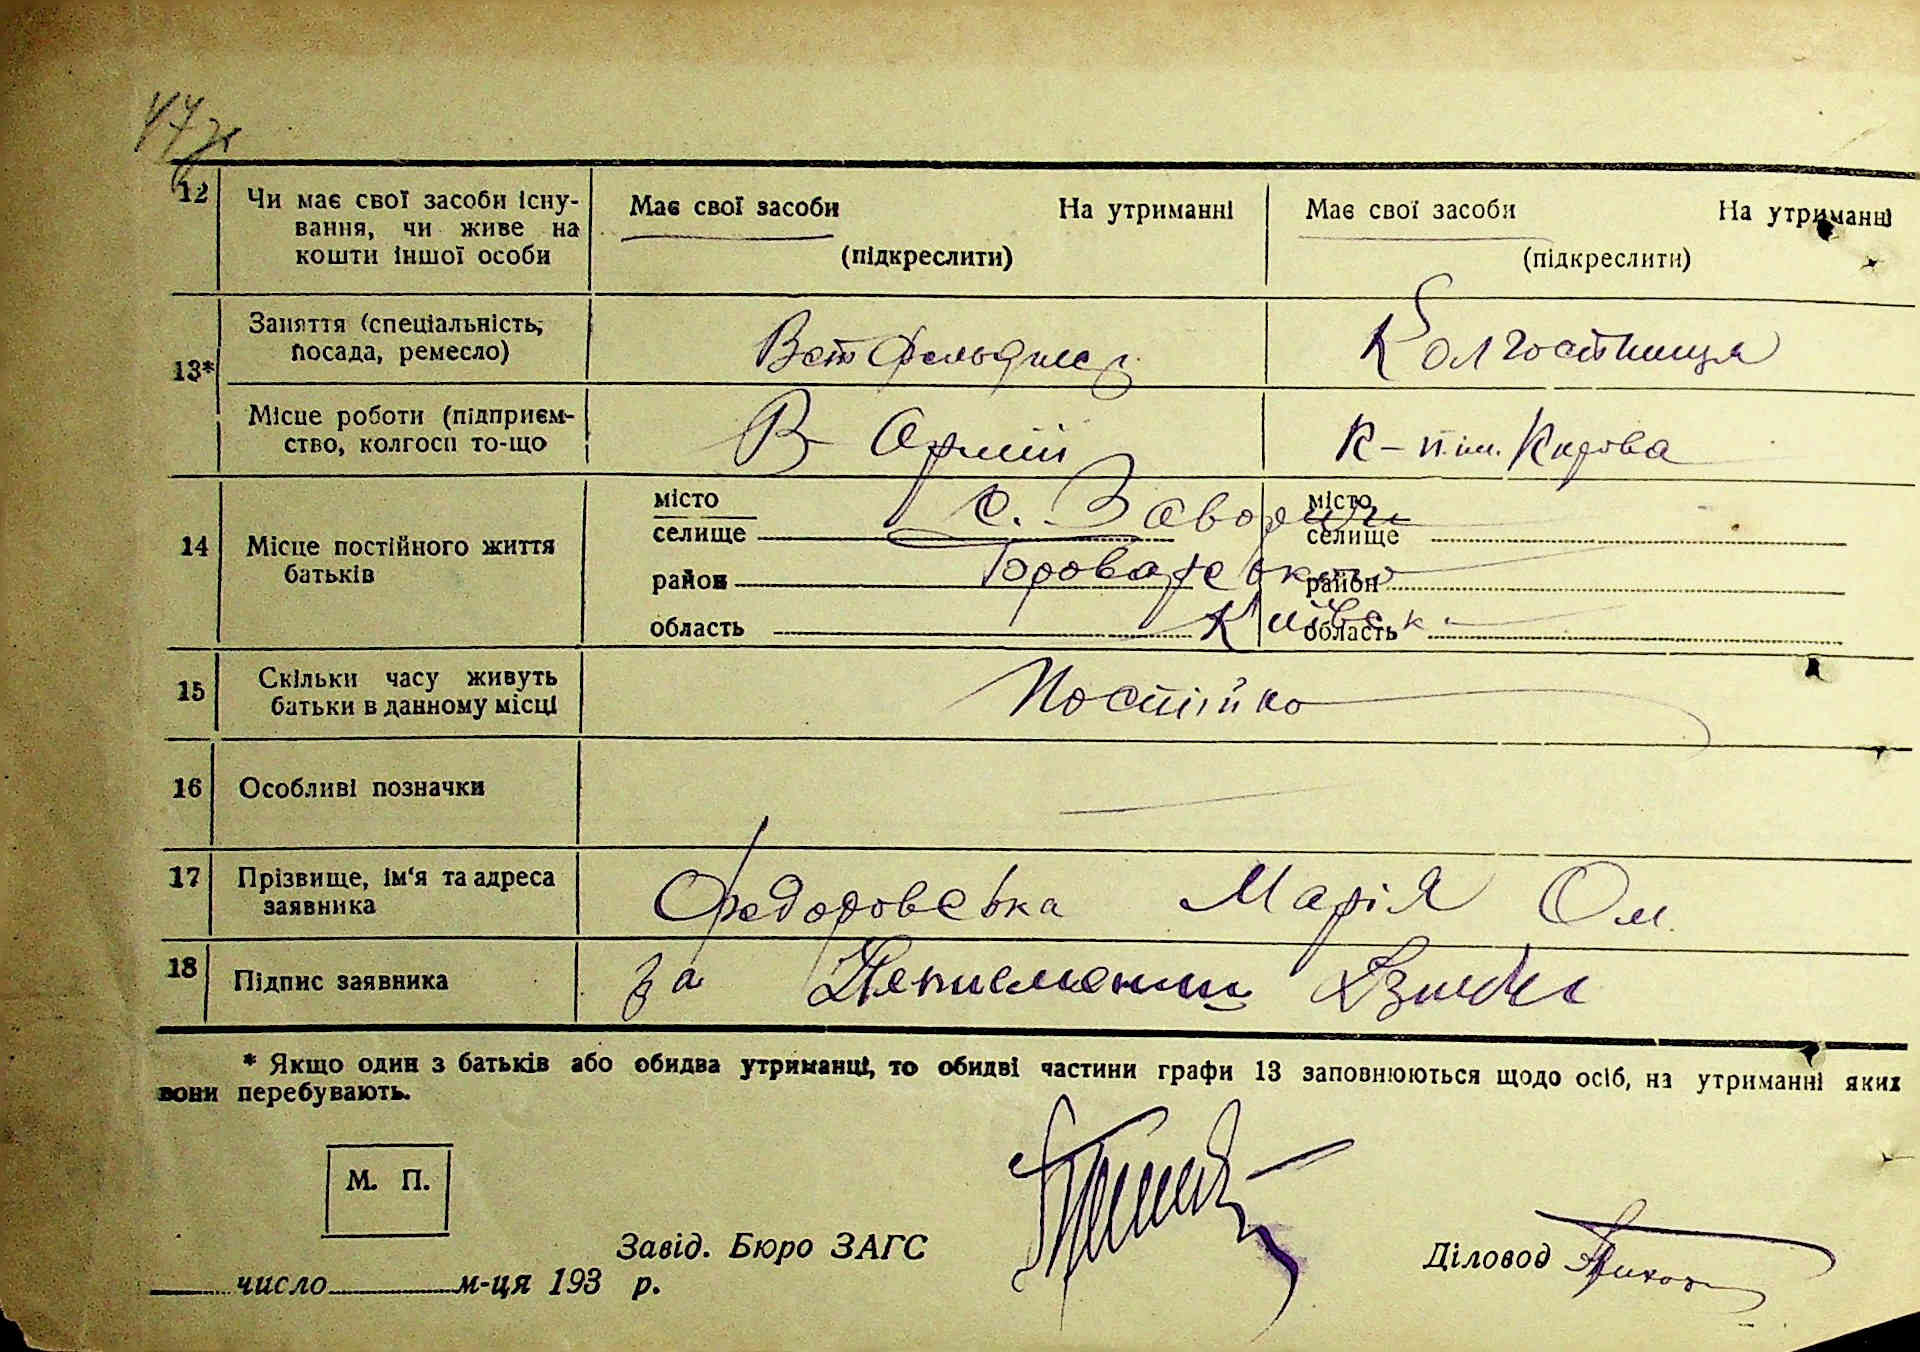 47
12 Чи має свої засоби існу-
вання, чи живе на
кошти іншої особи
Має свої засоби На утриманні
(підкреслити)
Має свої засоби На утриманні
(підкреслити)
13* Заняття (спеціальність,
посада, ремесло)
Вет Фельдшер
Колгостниця
Місце роботи (підприєм-
ство, колгосп то-що
В Армії
К-п. ім. Кірова
14 Місце постійного життя
батьків
місто
селище
с. Заворичі
район Броварського
область Київськ
місто
селище
район
область
15 Скільки часу живуть
батьки в данному місці
Постійно
16 Особливі позначки
17 Прізвище, ім'я та адреса
заявника
Федоровська Марія Ом.
18 Підпис заявника
за Неписменни
* Якщо один з батьків або обидва утриманці, то обидві частини графи 13 заповнюються щодо осіб, на утриманні яких
вони перебувають.
М. П.
Завід. Бюро ЗАГС
Діловод
число м-ця 193 р.